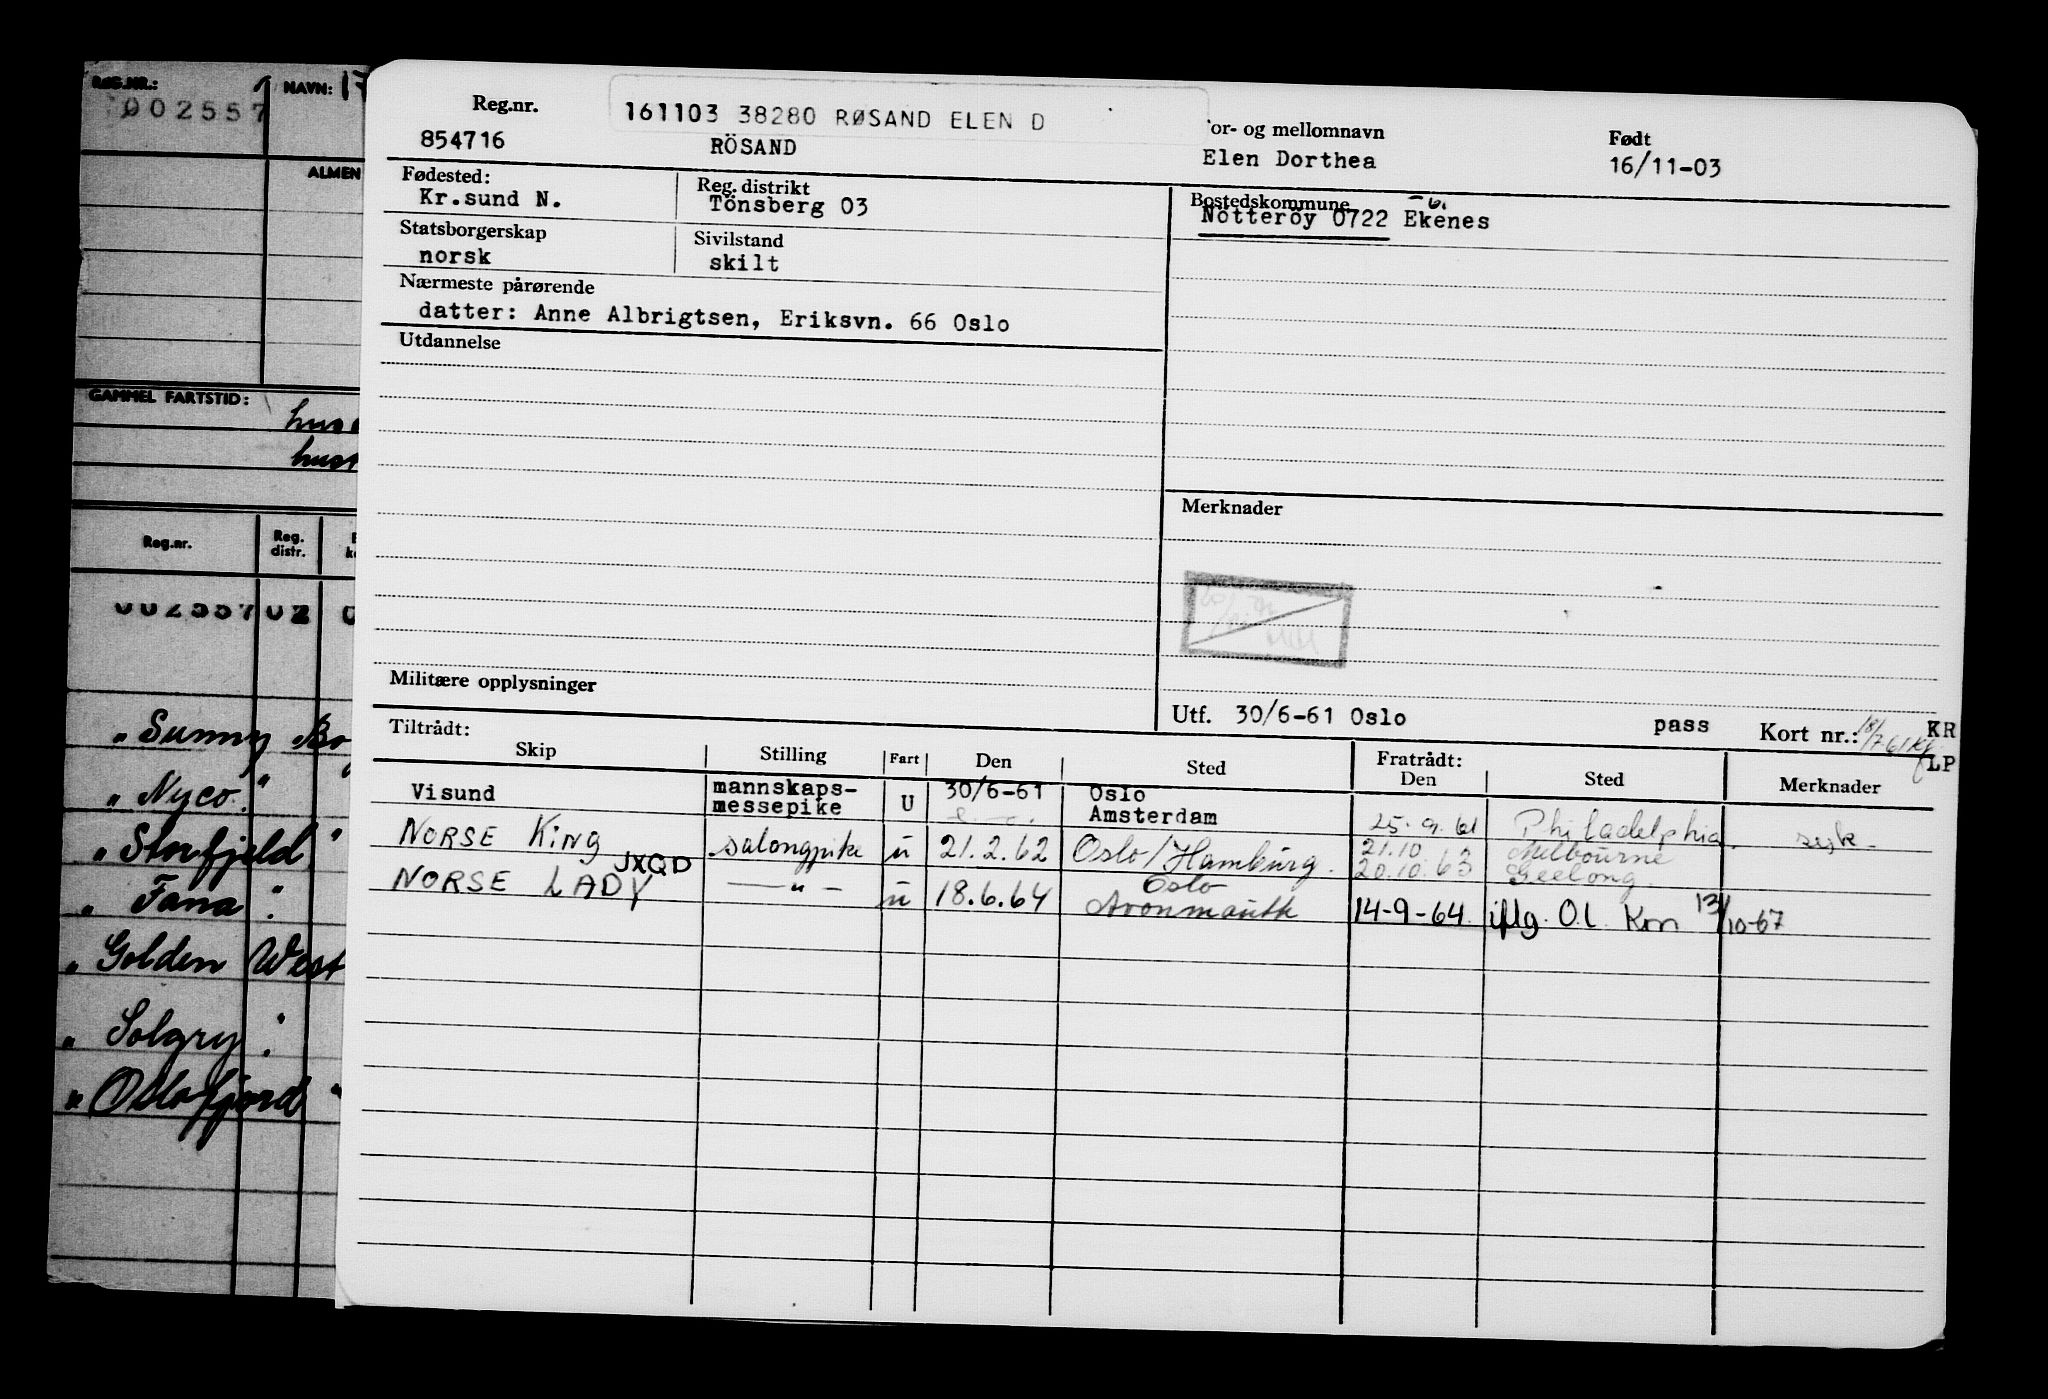 REG.NR.:
NAVN: 17
002557
ALMEN
GAMMEL FARTSTID:
Reg.nr.
Reg.
distr.
002557 02
"Sunny Bo
"Nyco."
"Storfjeld."
"Fana".
"Golden West
"Solgry".
"Oslofjord"
Reg.nr.
161103 38280 RØSAND ELEN D
or- og mellomnavn
Født
854716
RÖSAND
Elen Dorthea
16/11-03
Fødested:
Kr.sund N.
Reg. distrikt
Tönsberg 03
Bostedskommune
Nötteröy 0722 Ekenes
Statsborgerskap
norsk
Sivilstand
skilt
Nærmeste pårørende
datter: Anne Albrigtsen, Eriksvn. 66 Oslo
Utdannelse
Merknader
Militære opplysninger
Utf. 30/6-61 Oslo
pass
Kort nr.: 18/7 61
KR
LP
Tiltrådt:
Skip
Stilling
Fart
Den
Sted
Fratrådt:
Den
Sted
Merknader
Visund
mannskaps-
messepike
U
30/6-61
Oslo
Amsterdam
25.9.61
Philadelphia.
syk-
NORSE KING
salongpike
u
21.2.62
Oslo/Hamburg.
21.10
20.10.63
Melbourne
Geelong.
NORSE LADY
JXQD
—"—
u
18.6.64
Oslo
Avonmouth
14-9-64.
iflg. O.l. Kon 13/10-67